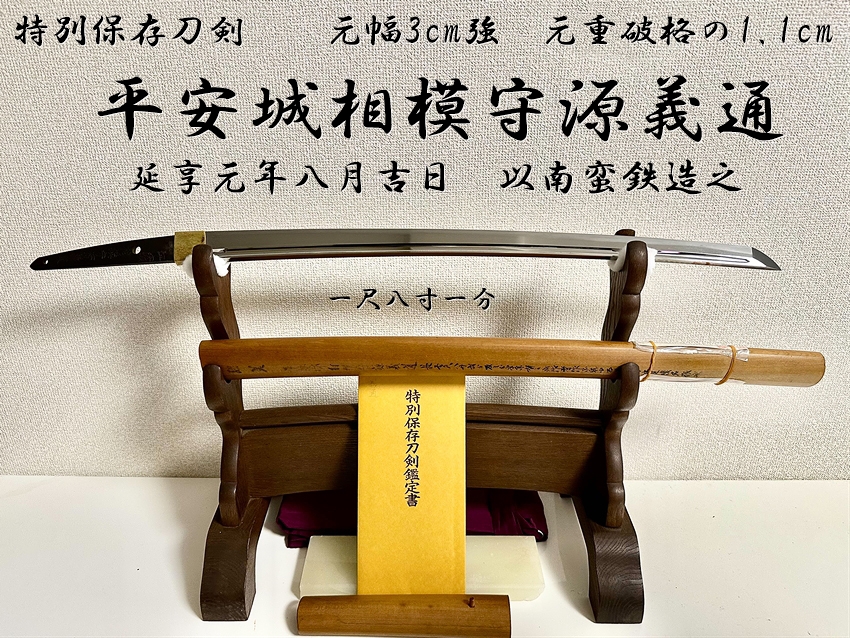 特別保存刀剣　元幅3cm強　元重破格の1.1cm
平安城相模守源義通
延享元年八月吉日　以南蛮鉄造之
一尺八寸一分
特別保存刀剣鑑定書